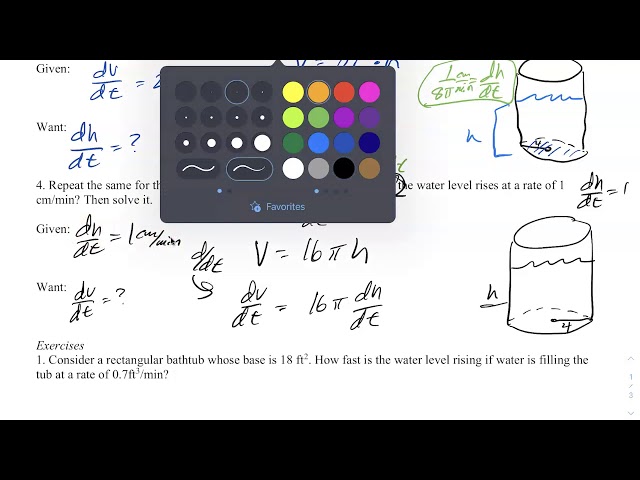 Given:
dv/dt = 2
1 cm/8π min = dh/dt
h
Want:
dh/dt = ?
4. Repeat the same for th the water level rises at a rate of 1
cm/min? Then solve it.
dh/dt = 1
Given:
dh/dt = 1 cm/min
d/dt
V = 16πh
Want:
dv/dt = ?
dv/dt = 16π dh/dt
h
4
Favorites
Exercises
1. Consider a rectangular bathtub whose base is 18 ft². How fast is the water level rising if water is filling the
tub at a rate of 0.7ft³/min?
1
/
3